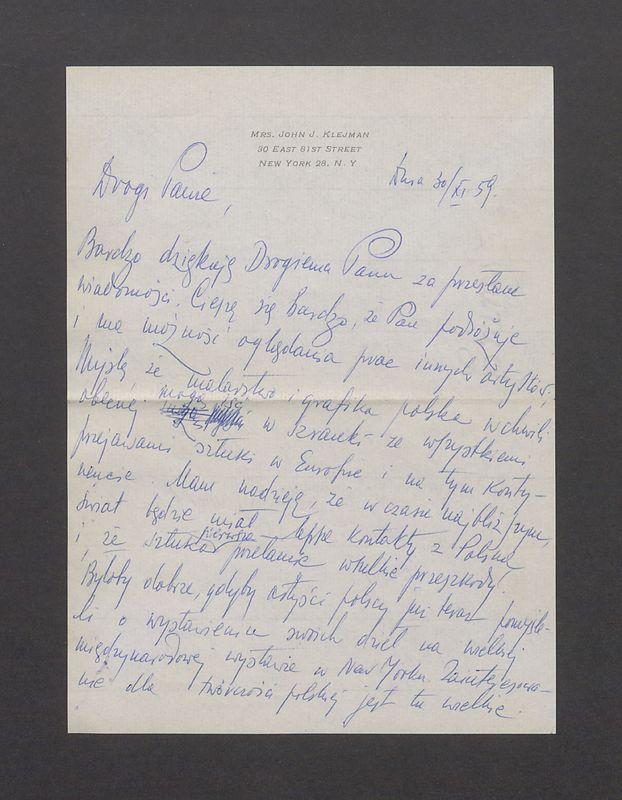 MRS. JOHN J. KLEJMAN
30 EAST 81ST STREET
NEW YORK 28, N. Y
Dnia 30/XI 59.
Drogi Panie,
Bardzo dziękuję Drogiemu Panu za przesłane
wiadomości. Cieszę się Bardzo, że Pan podróżuje
i ma możność oglądania prac innych artystów;
Myślę że malarstwo i grafika polska w chwili
obecnej mogą iść w szranki ze wszystkiemi
przejawami sztuki w Europie i na tym Konty-
nencie. Mam nadzieję, że w czasie najbliższym,
świat będzie miał lepsze kontakty z Polską
i że sztuka pierwsza przełamie wszelkie przeszkody.
Byłoby dobrze, gdyby artyści polscy już teraz pomyśle-
li o wystawieniu swoich dzieł na wielkiej
międzynarodowej wystawie w New Yorku. Zainteresowa-
nie dla twórczości polskiej jest tu wielkie.